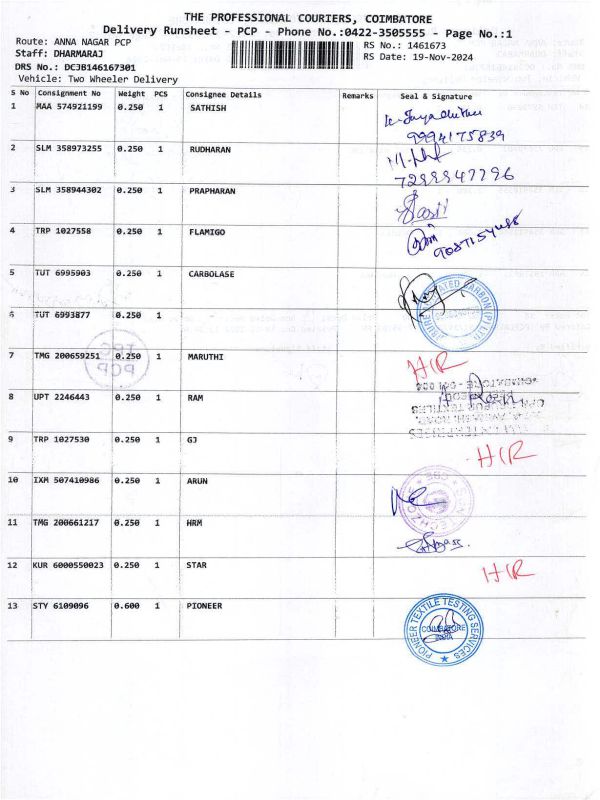 THE PROFESSIONAL COURIERS, COIMBATORE
Delivery Runsheet - PCP - Phone No.:0422-3505555 - Page No.:1
Route: ANNA NAGAR PCP RS No.: 1461673
Staff: DHARMARAJ RS Date: 19-Nov-2024
DRS No.: DCJB146167301
Vehicle: Two Wheeler Delivery
S No Consignment No Weight PCS Consignee Details Remarks Seal & Signature
1 MAA 574921199 0.250 1 SATHISH
9994175839
2 SLM 358973255 0.250 1 RUDHARAN
7299947796
3 SLM 358944302 0.250 1 PRAPHARAN
4 TRP 1027558 0.250 1 FLAMIGO
5 TUT 6995903 0.250 1 CARBOLASE
6 TUT 6993877 0.250 1
7 TMG 200659251 0.250 1 MARUTHI H/R
TPC
PCP
8 UPT 2246443 0.250 1 RAM
9 TRP 1027530 0.250 1 GJ H/R
10 IXM 507410986 0.250 1 ARUN
11 TMG 200661217 0.250 1 HRM
12 KUR 6000550023 0.250 1 STAR H/R
13 STY 6109096 0.600 1 PIONEER
PIONEER TEXTILE TESTING SERVICES
COIMBATORE
INDIA